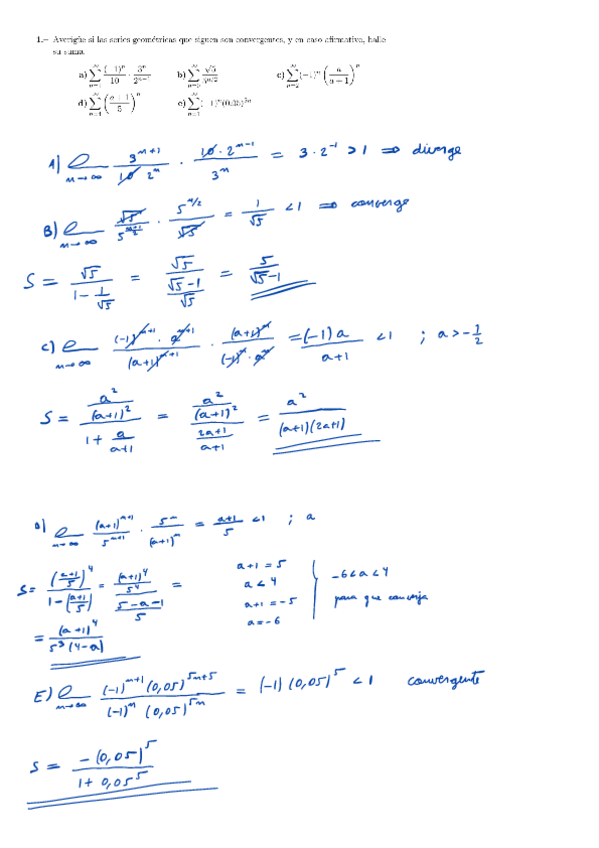 1.– Averigüe si las series geométricas que siguen son convergentes, y en caso afirmativo, halle
su suma.
a) ∑ (−1)^n/10 · 3^n/2^(n−1) b) ∑ √5/5^(n/2) c) ∑ n=2 ∞ (−1)^n (a/(a+1))^n
d) ∑ n=4 ∞ ((a+1)/5)^n e) ∑ n=1 ∞ (−1)^n (0,05)^5n
A) l n→∞ 3^(n+1)/(10 2^n) · (10·2^(n−1))/3^n = 3·2^-1 >1 ⇒ diverge
B) l n→∞ √5/5^((n+1)/2) · 5^(n/2)/√5 = 1/√5 <1 ⇒ converge
S = √5/(1 − 1/√5) = √5/((√5−1)/√5) = 5/(√5−1)
C) l n→∞ ((−1)^(n+1) · a^(n+1))/(a+1)^(n+1) · (a+1)^n/((−1)^n · a^n) = (−1)a/(a+1) <1 ; a > −1/2
S = (a²/(a+1)²)/(1 + a/(a+1)) = (a²/(a+1)²)/((2a+1)/(a+1)) = a²/((a+1)(2a+1))
D) l n→∞ (a+1)^(n+1)/5^(n+1) · 5^n/(a+1)^n = (a+1)/5 <1 ; a
S = ((a+1)/5)^4/(1−((a+1)/5)) = ((a+1)^4/5^4)/((5−a−1)/5) =
= (a+1)^4/(5³(4−a))
a+1 = 5
a < 4
a+1 = −5
a = −6
−6<a<4
para que converja
E) l n→∞ ((−1)^(n+1) (0,05)^(5n+5))/((−1)^n (0,05)^5n) = (−1) (0,05)^5 <1 convergente
S = −(0,05)^5/(1 + 0,05^5)